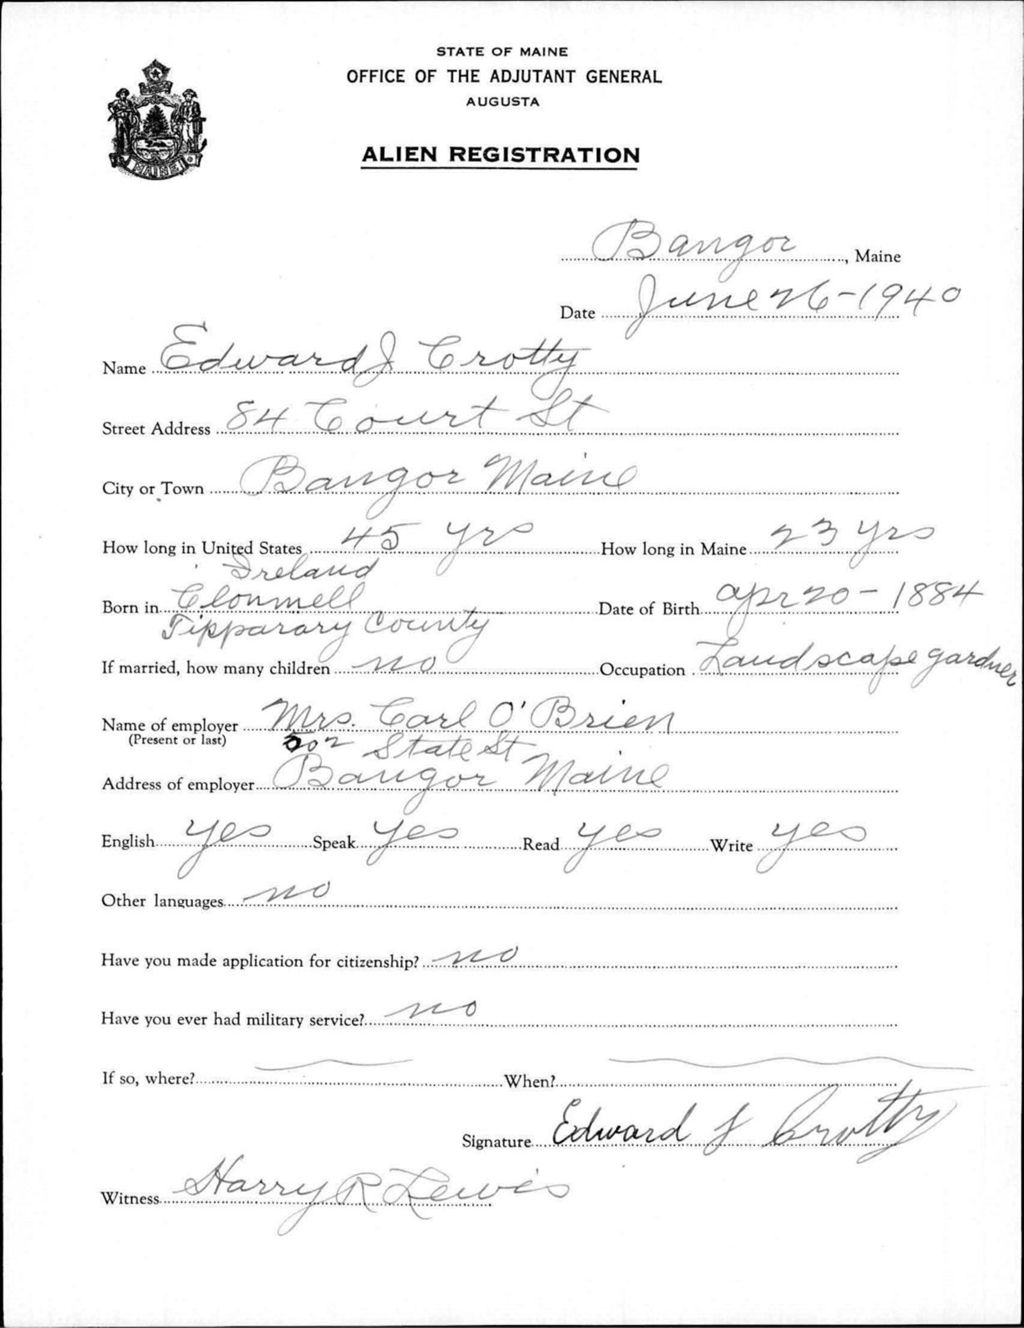 STATE OF MAINE
OFFICE OF THE ADJUTANT GENERAL
AUGUSTA
ALIEN REGISTRATION
MAINE
Bangor, Maine
Date June 26-1940
Name Edward J Crotty
Street Address 84 Court St
City or Town Bangor Maine
How long in United States 45 yrs How long in Maine 23 yrs
Ireland
Born in Clonmell Date of Birth Apr 20 - 1884
Tipparary County
If married, how many children no Occupation Landscape gardner
Name of employer Mrs. Carl O'Brien
(Present or last) 502 State St
Address of employer Bangor Maine
English yes Speak yes Read yes Write yes
Other languages no
Have you made application for citizenship? no
Have you ever had military service? no
If so, where? When?
Signature Edward J Crotty
Witness Harry R Lewis